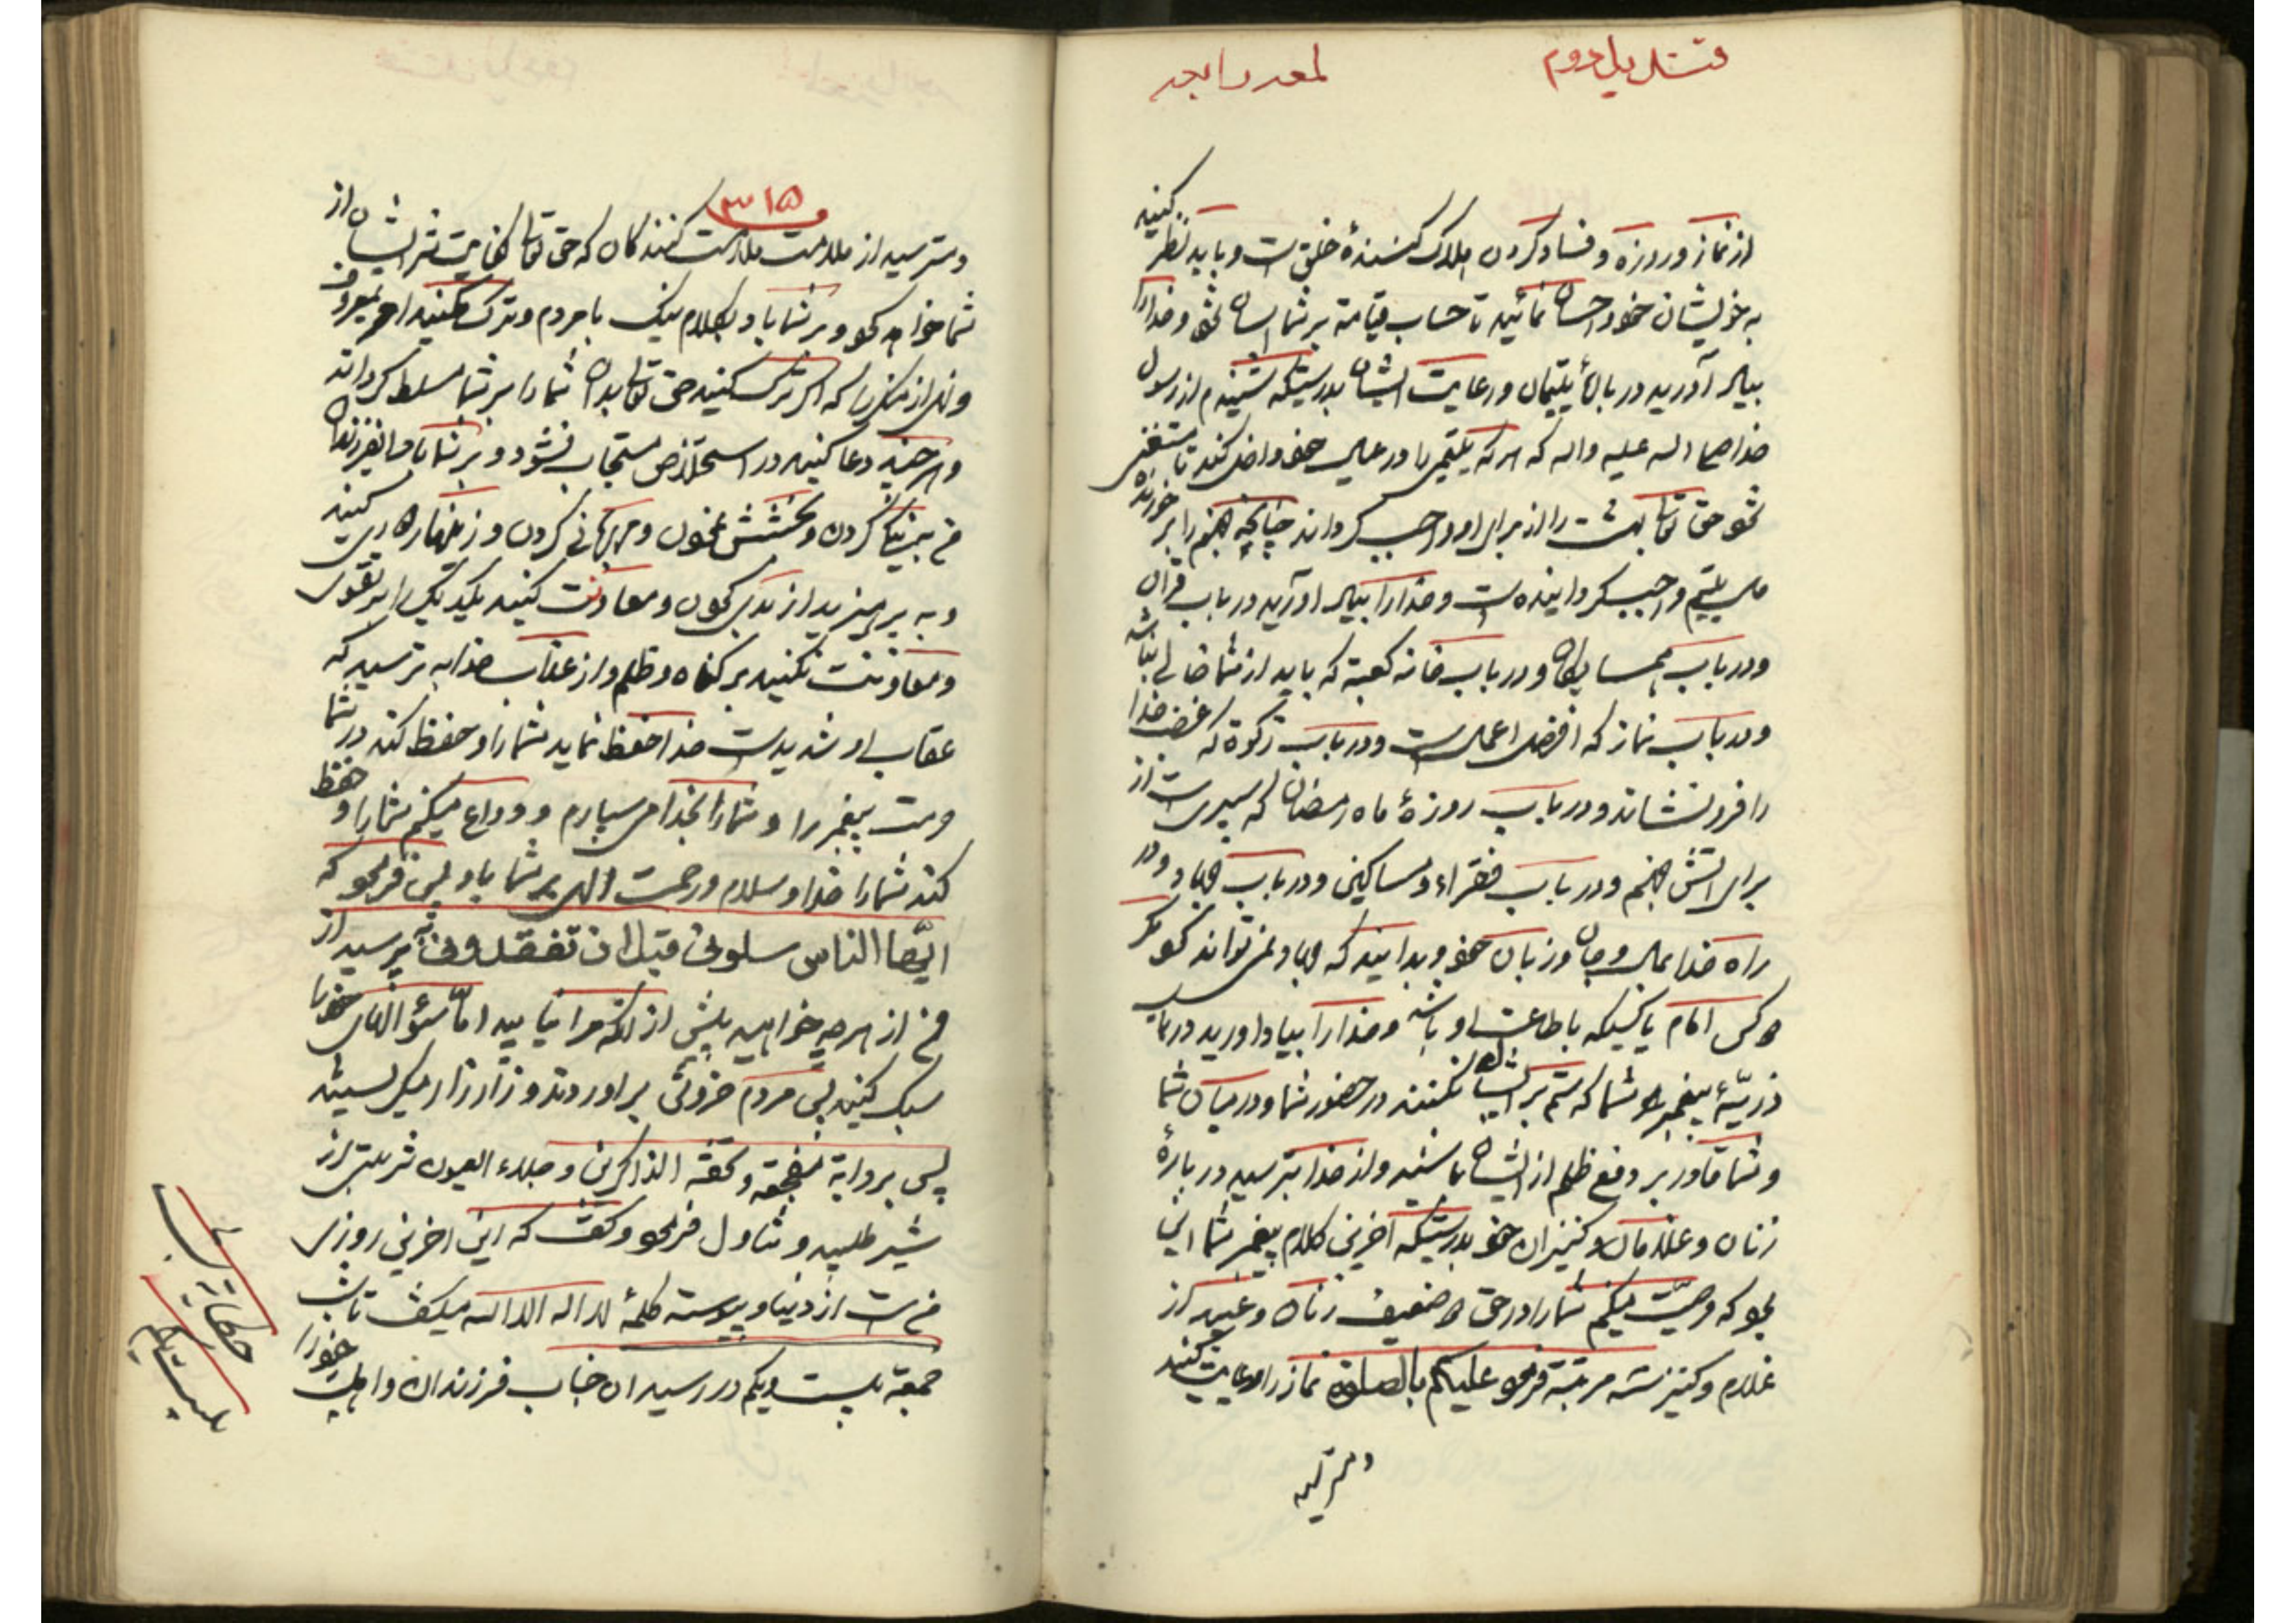 قندیل دوم لمعه رابعه
از نماز و روزه و فساد کردن هلاک کننده خلق است و باید نظر کنید
به خویشان خود احسان نمائید تا حساب قیامة بر شما اسان شود و خدا را
بیاد آورید در باب یتیمان و رعایت ایشان بدرستیکه شنیدم از رسول
خدا صلی الله علیه واله که هر که یتیمی را در عیال خود داخل کند تا مستغنی
شود حق تعالی بهشت را از برای او واجب گرداند چنانچه جهنم را بر خورنده
مال یتیم واجب گردانیده است و خدا را بیاد اورید در باب قران
و در باب همسایگان و در باب خانه کعبة که باید از شما خالی نباشد
و در باب نماز که افضل اعمال است و در باب زکوة که غضب خدا
را فرو نشاند و در باب روزۀ ماه رمضان که سپری است از
برای اتش جهنم و در باب فقراء و مساکین و در باب جهاد در
راه خدا بمال و جان و زبان خود و بدانید که جهاد نمی تواند کرد مگر
دو کس امام یا کسیکه باطاعت او باشد و خدا را بیاد اورید در باب
ذریّۀ پیغمبر شما که ستم بر ایشان نکنند در حضور شما و در میان شما
و شما قادر بر دفع ظلم از ایشان باشید و از خدا بترسید در بارۀ
زنان و غلامان و کنیزان خود بدرستیکه اخرین کلام پیغمبر شما این
بود که وصیّت میکنم شما را در حق دو ضعیف زنان و عبید از
غلام و کنیز سه مرتبة فرمود علیکم بالصلوة نماز را رعایت کنید
و مترسید
۳۱۵
و مترسید از ملامت ملامت کنندگان که حق تعالی کفایت شر ایشان از
شما خواهد کرد و بر شما باد بکلام نیک با مردم و ترک مکنید امر بمعروف
و نهی از منکر را که اگر ترک کنید حق تعالی بدان شما را بر شما مسلط گرداند
و هر چند دعا کنید در استخلاص مستجاب نشود و بر شما باد ای فرزندان
من به نیکی کردن و بخشش نمودن و مهربانی کردن و زینهار دوری کنید
و به پرهیزید از بدی کردن و معاونت کنید یکدیگر را بر تقوی
و معاونت نکنید بر گناه و ظلم و از عذاب خدا به ترسید که
عقاب او شدید است خدا حفظ نماید شما را و حفظ کند در شما
حرمت پیغمبر را و شما را بخدا می سپارم و وداع میکنم شما را و حفظ
کند شما را خدا و سلام و رحمت الهی بر شما باد پس فرمود که
ایّها الناس سلونی قبل ان تفقدونی به پرسید از
من از هر چه خواهید پیش از انکه مرا نیابید امّا سؤالهای خود را
سبک کنید پس مردم خروش بر اوردند و زار زار میگریستند
پس بروایة مفجعه و تحفة الذاکرین و جلاء العیون شربتی از
شیر طلبید و تناول فرمود و گفت که این اخرین روزی
من است از دنیا و پیوسته کلمۀ لا اله الا الله میگفت تا شب
جمعة بیست و یکم در رسید ان جناب فرزندان و اهل بیت خود را
حکایة شب
بیست و یکم